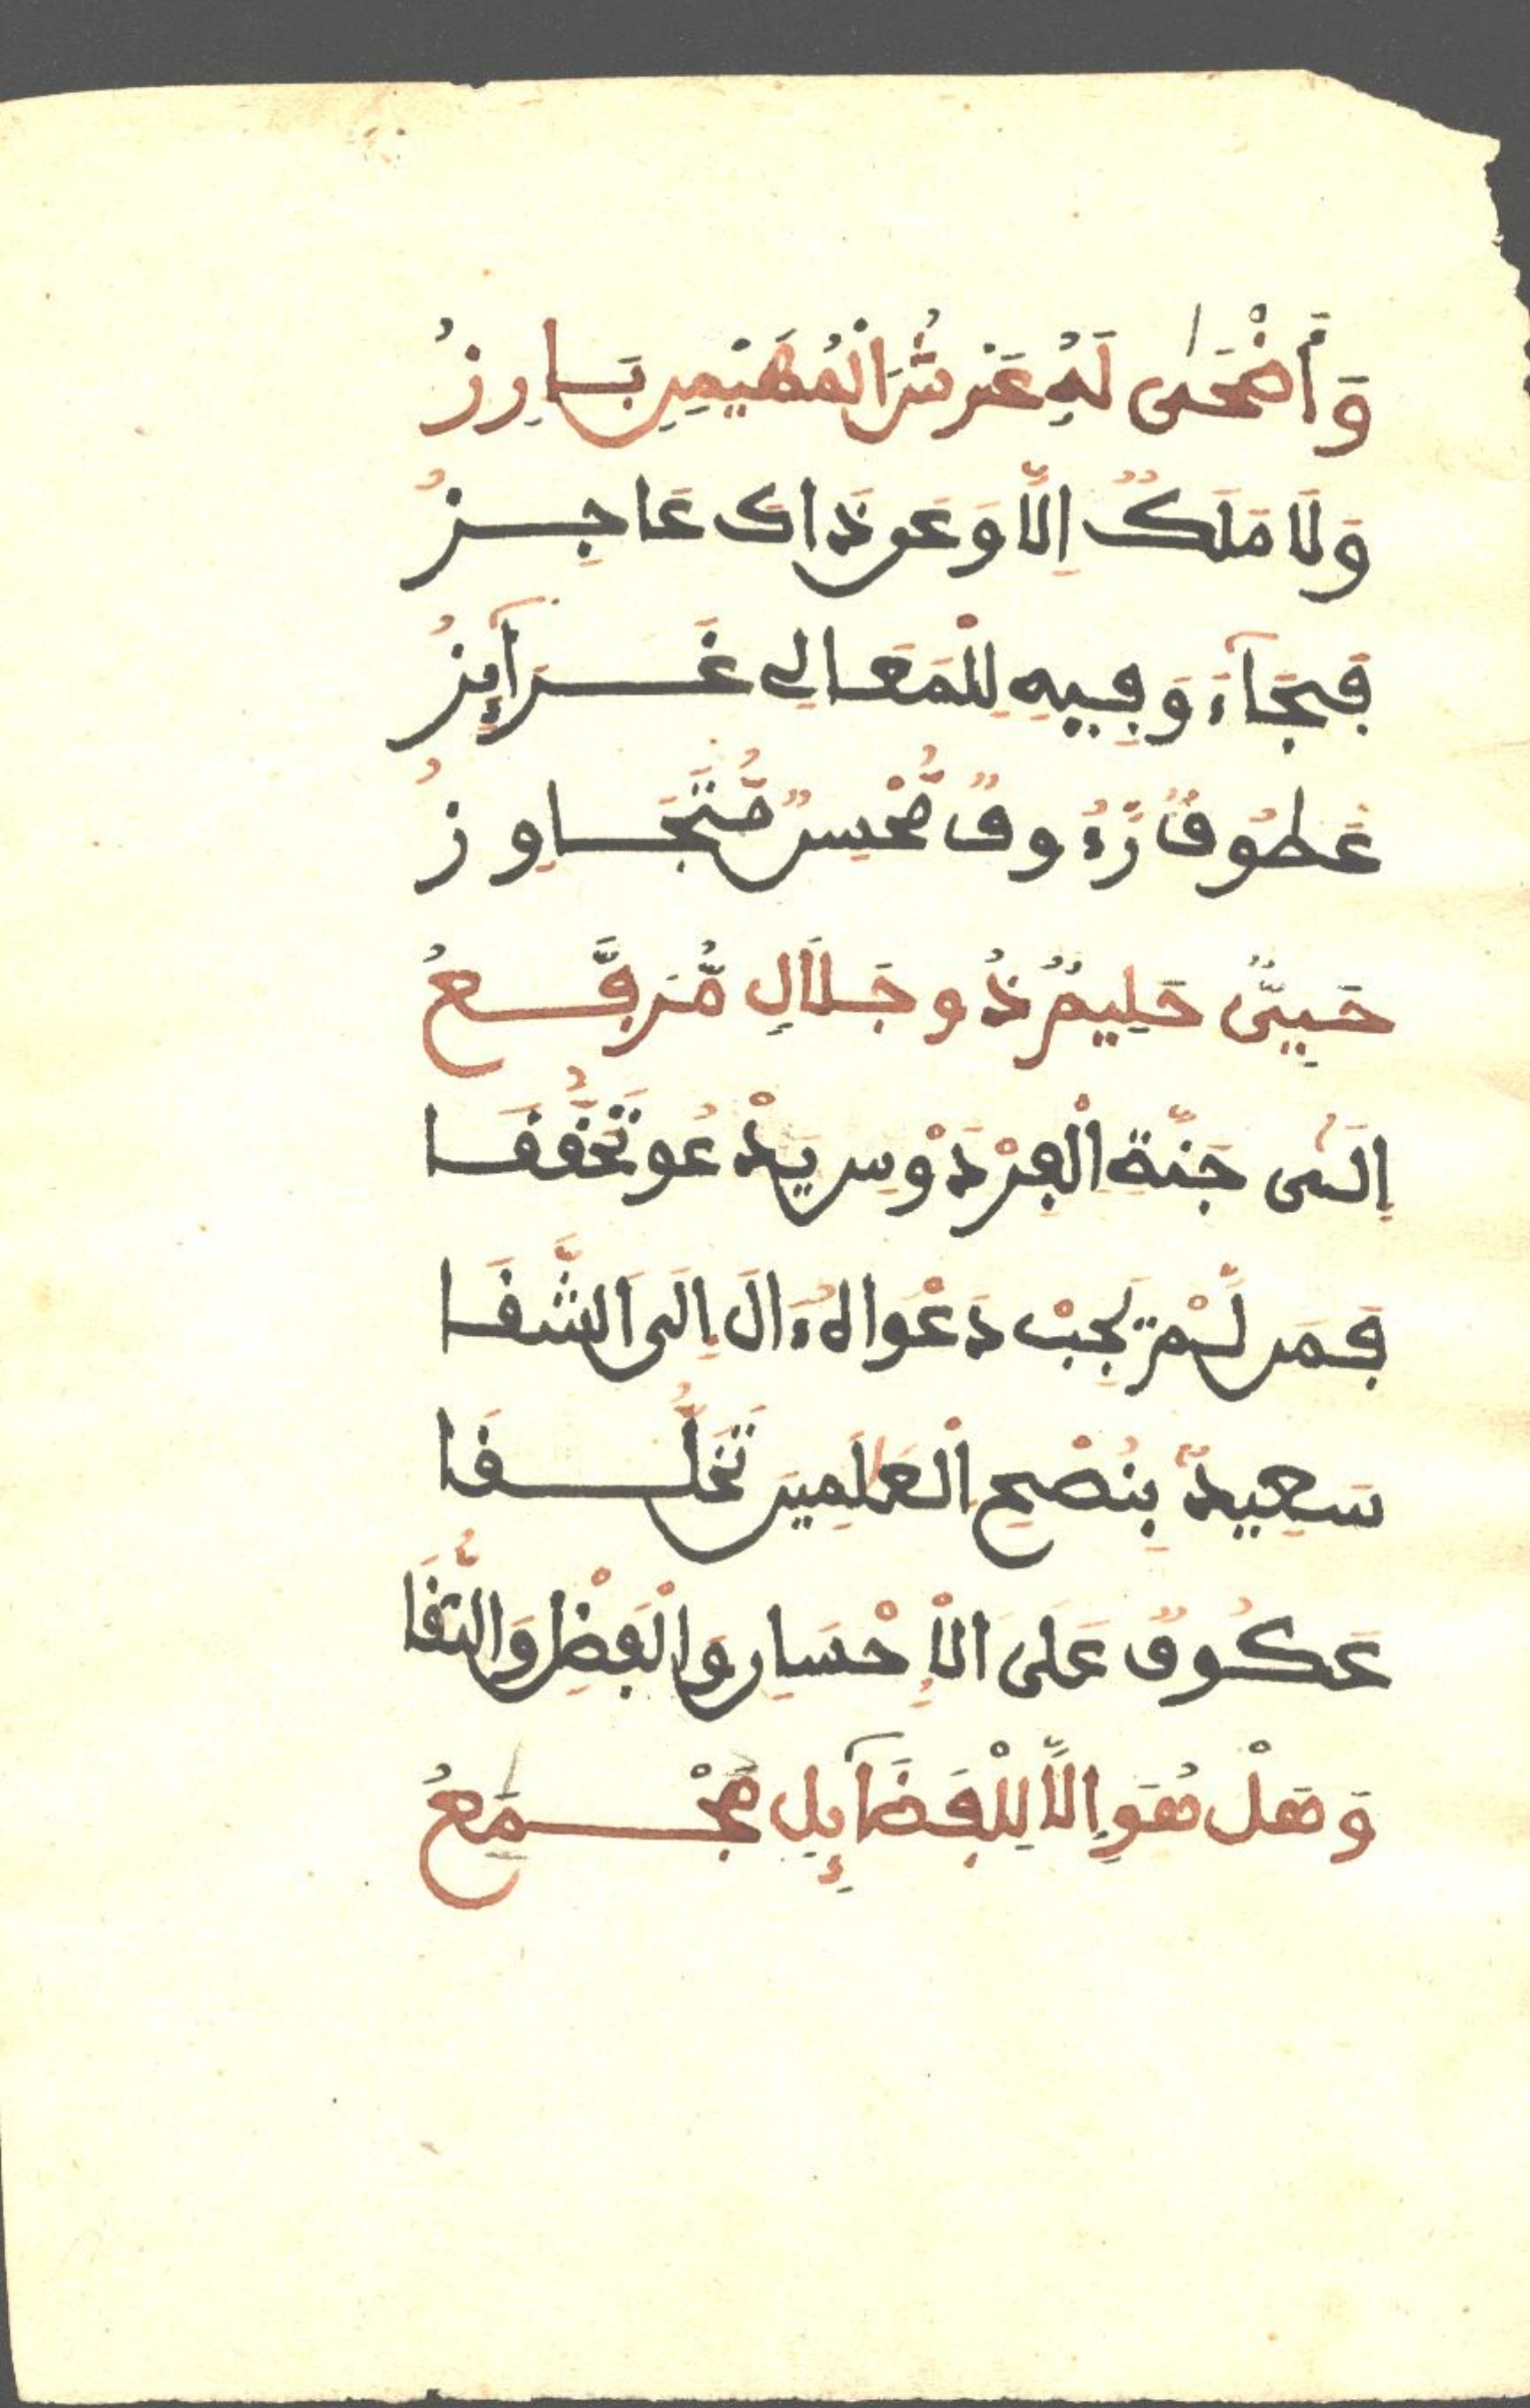 وَأَضْحَىٰ لَهُ عَرْشُ الْمُهَيْمِنِ بَارِزُ
وَلَا مَلَكٌ إِلَّا وَعَن ذَاكَ عَاجِزُ
فَجَآءَ وَفِيهِ لِلْمَعَالِي غَرَآئِزُ
عَطُوفٌ رَّءُوفٌ مُّحْسِنٌ مُّتَجَاوِزُ
حَيِيٌّ حَلِيمٌ ذُو جَلَالٍ مُّرَفَّعُ
إِلَىٰ جَنَّةِ الْفِرْدَوْسِ يَدْعُو تَحَقُّقَا
فَمَن لَّمْ يُجِبْ دَعْوَاهُ ءَالَ إِلَى الشَّقَا
سَعِيدٌ بِنُصْحِ الْعَٰلَمِينَ تَخَلُّقَا
عَكُوفٌ عَلَى الْإِحْسَانِ وَالْفَضْلِ وَالتُّقَا
وَهَلْ هُوَ إِلَّا لِلْفَضَآئِلِ مَجْمَعُ